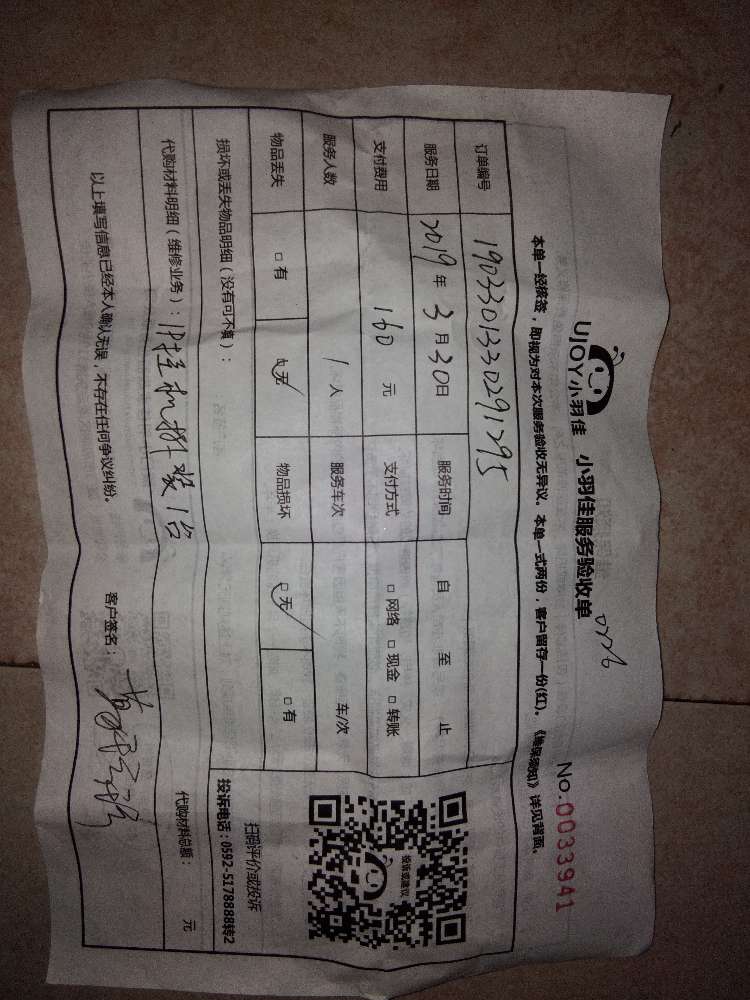 UJOY小羽佳 小羽佳服务验收单
No.0033941
本单一经核签，即视为对本次服务验收无异议。本单一式两份，客户留存一份(红)。《维保须知》详见背面。
订单编号 19033013302912​95
服务日期 2019年3月30日 服务时间 自 至 止
支付费用 160元 支付方式 □网络 □现金 □转账
服务人数 1人 服务车次 车/次
物品丢失 □有 □无 物品损坏 □无 □有
投诉或建议
扫码评价或投诉
投诉电话：0592-5178888转2
损坏或丢失物品明细（没有可不填）：
代购材料明细（维修业务）：1P挂机拆装1台 代购材料总额： 元
以上填写信息已经本人确认无误，不存在任何争议纠纷。 客户签名：